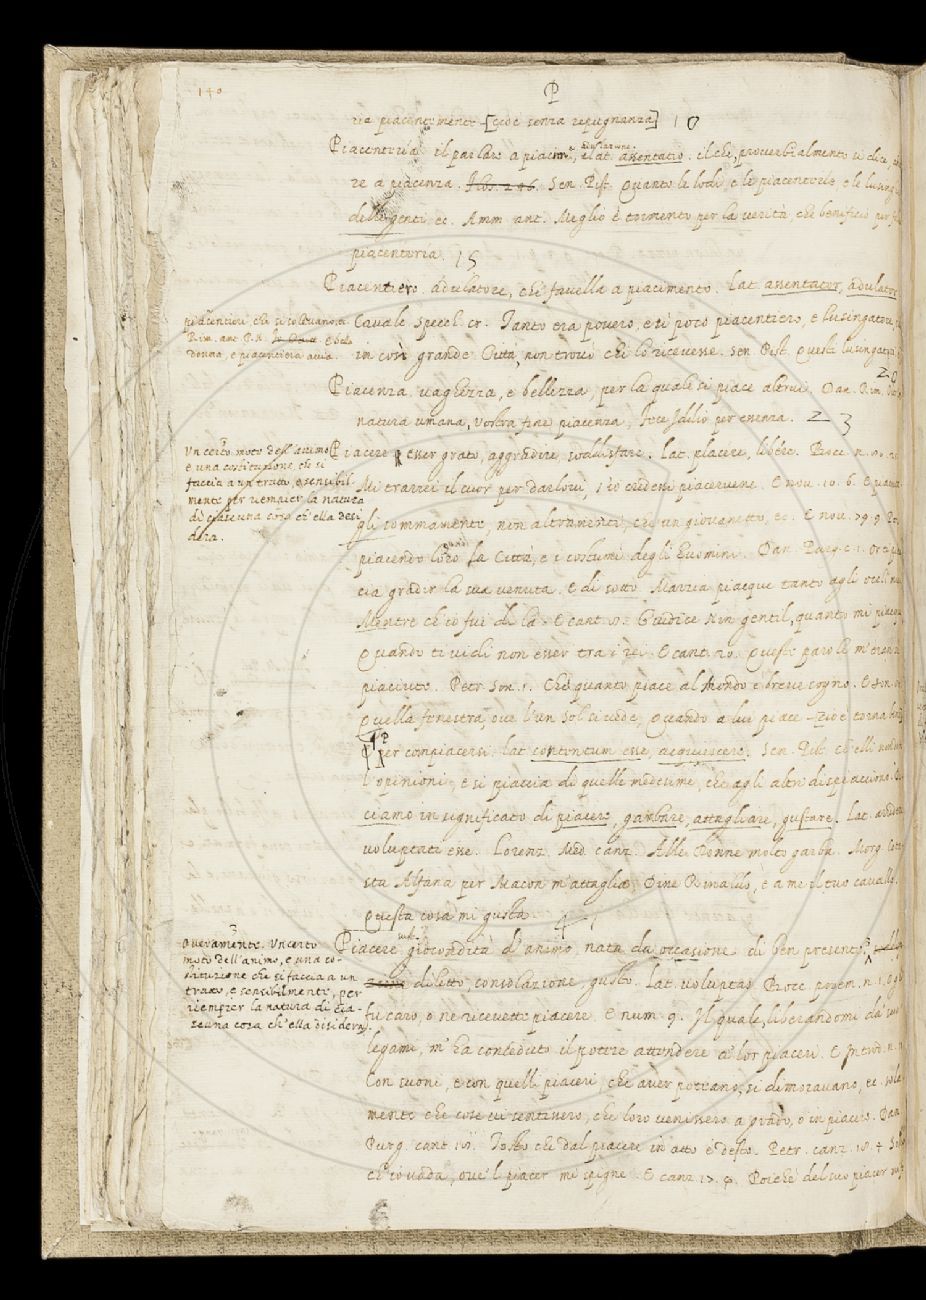 140
P
piacentemente [cioè senza repugnanza] 10
Piacenteria il parlare a piacim.to lat. assentatio. il che, proverbialmente si dice
re a piacenza. Sen. Pist. Quanto le lodi, e le piacenterie e le lusing
delle genti ec. Amm. ant. Meglio è tormento per la verità, che beneficio per
piacenteria. 15
Piacentiero. adulatore, che favella a piacimento. Lat. assentator, adulator
piacentieri, che si
Rim. ant. P. N. e bella
donna, e piacentiera
Cavalc. Specch. cr. Tanto era povero, e sì poco piacentiero, e lusingatore,
in così grande Città, non trovò chi lo ricevesse. Sen. Pist. Questi lusingatori
20
Piacenza. vaghezza, e bellezza, per la quale si piace altrui. Dan. Rim.
natura umana, vostra fine piacenza, fece Iddio per essenza. 23
Un certo moto dell'animo
e una costituzione che si
faccia a un tratto, e sensibil-
mente per riempier la natura
di ciascuna cosa ch'ella desi
dera.
Piacere esser grato, aggradire, soddisfare. Lat. placere, libere. Bocc. n.
Mi trarrei il cuor per darlovi, s'io credessi piacervene. E nov. 10. 6. E
gli sommamente, non altramenti, che un giovanetto, ec. E nov. 79. 9
piacendo loro la Città, e i costumi degli Huomini. Dan. Purg. c. 1. Or ti
cia gradir la sua venuta. E di sotto. Marzia piacque tanto agli occhi
Mentre ch'io fui di là. E cant. 8. Giudice Nin gentil, quanto mi piacque
Quando ti vidi non esser tra i rei. E cant. 20. Queste parole m'eran
piaciute. Petr. Son. 1. Che quanto piace al Mondo è breve sogno. E son.
Quella fenestra, ove l'un Sol si vede, Quando a lui piace
P per compiacersi. Lat. contentum esse, acquiescere. Sen. Pist. ch'elli
l'opinioni, e si piaccia di quelle medesime, che agli altri dispiacciono.
ciamo in significato di piacere, garbare, attagliare, gustare. Lat.
voluptati esse. Lorenz. Med. canz. Alle Donne molto garba. Morg.
sta Alfana per Macon m'attaglia, Dine Rinaldo, e a me il tuo cavallo.
Questa cosa mi gusta.
overamente. Un certo
moto dell'animo, e una co-
stituzione che si faccia a un
tratto, e sensibilmente, per
riempier la natura di cia-
scuna cosa ch'ella disidera.
Piacere sust. giocondità d'animo, nata da occasione di ben presente,
diletto, consolazione, gusto. Lat. voluptas. Bocc. proem. n. 1.
fu caro, o ne ricevette piacere. E num. 9. Il quale, liberandomi da' suoi
legami, m'ha conceduto il potere attendere a' lor piaceri. E Introd. n.
Con suoni, e con quelli piaceri, che aver potean, si dimoravano, ec. sola
mente che cose si sentissero, che loro venissero a grado, o in piacere. Dan.
Purg. cant. 18. Tosto che dal piacere in atto è desto. Petr. canz. 18. 4
ch'io vada, ove 'l piacer mi spigne. E canz. 17. Poichè del suo piacer